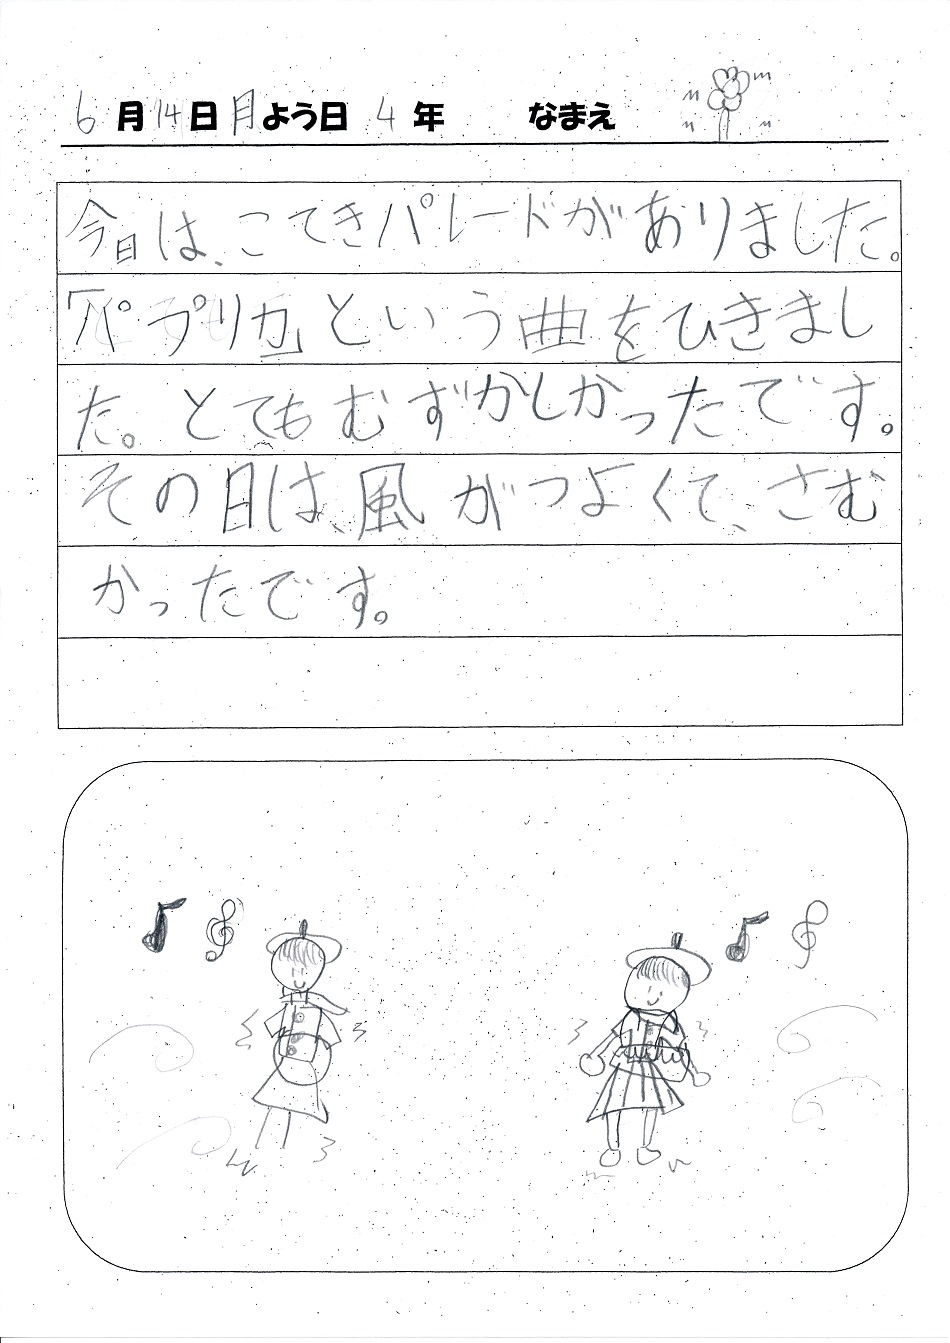 6月14日月よう日 4年 なまえ
今日は、こてきパレードがありました。
「パプリカ」という曲をひきまし
た。とてもむずかしかったです。
その日は、風がつよくて、さむ
かったです。